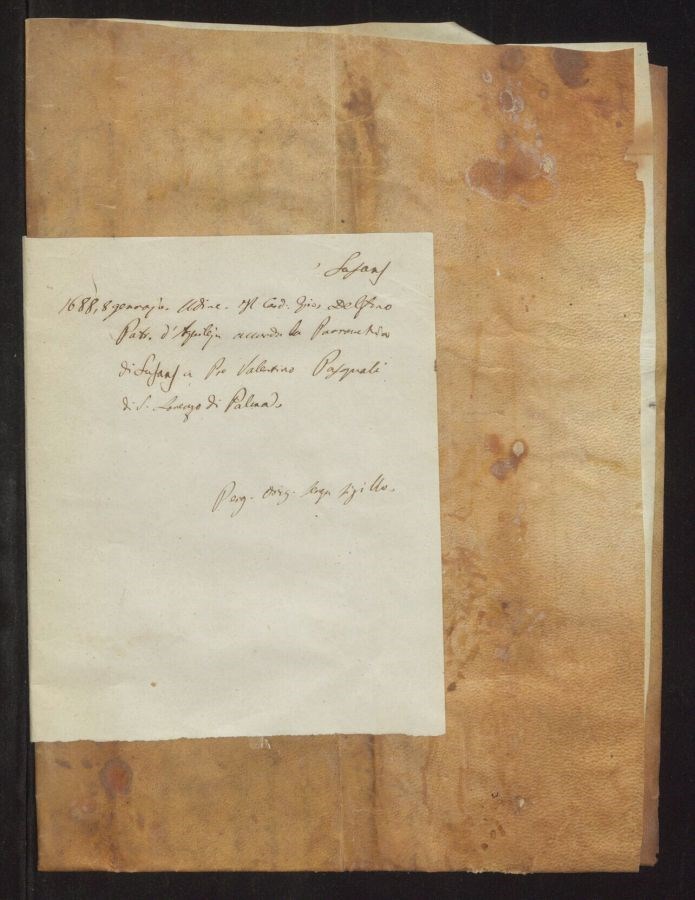 Susans
1688, 8 gennajo. Udine. Il Card. Gio. Delfino
Patr. d'Aquileja accorda la Parrocchia
di Susans a Pre Valentino Pasquali
di S. Lorenzo di Palmad.
Perg. orig. senza sigillo.